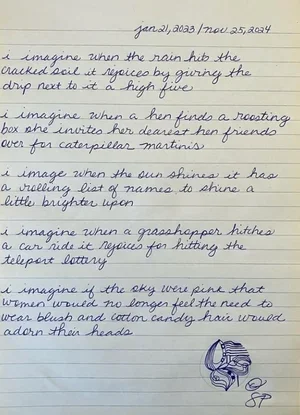 jan 21, 2023 / nov. 25, 2024
i imagine when the rain hits the
cracked soil it rejoices by giving the
drip next to it a high five
i imagine when a hen finds a roosting
box she invites her dearest hen friends
over for caterpillar martinis
i image when the sun shines it has
a rolling list of names to shine a
little brighter upon
i imagine when a grasshopper hitches
a car ride it rejoices for hitting the
teleport lottery
i imagine if the sky were pink that
women would no longer feel the need to
wear blush and cotton candy hair would
adorn their heads